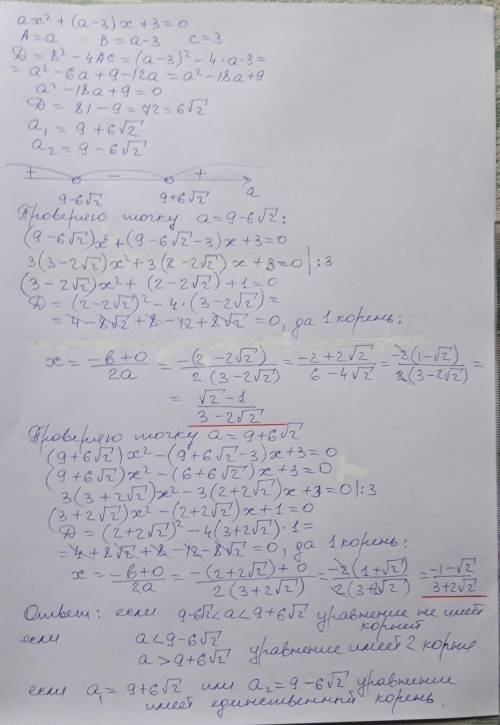 ax² + (a-3)x + 3 = 0
A = a B = a-3 c = 3
D = B² - 4AC = (a-3)² - 4·a·3 =
= a² - 6a + 9 - 12a = a² - 18a + 9
a² - 18a + 9 = 0
D = 81 - 9 = 72 = 6√2
a₁ = 9 + 6√2
a₂ = 9 - 6√2
+ - +
9-6√2 9+6√2 a
Проверяю точку a = 9-6√2:
(9-6√2)x² + (9-6√2-3)x + 3 = 0
3(3-2√2)x² + 3(2-2√2)x + 3 = 0 |:3
(3-2√2)x² + (2-2√2) + 1 = 0
D = (2-2√2)² - 4·(3-2√2) =
= 4 - 8√2 + 8 - 12 + 8√2 = 0, да 1 корень:
x = -b+0/2a = -(2-2√2)/2(3-2√2) = -2+2√2/6-4√2 = -2(1-√2)/2(3-2√2) =
= √2-1/3-2√2
Проверяю точку a = 9+6√2
(9+6√2)x² - (9+6√2-3)x + 3 = 0
(9+6√2)x² - (6+6√2)x + 3 = 0
3(3+2√2)x² - 3(2+2√2)x + 3 = 0 |:3
(3+2√2)x² - (2+2√2)x + 1 = 0
D = (2+2√2)² - 4(3+2√2)·1 =
= 4 + 8√2 + 8 - 12 - 8√2 = 0, да 1 корень:
x = -b+0/2a = -(2+2√2)+0/2(3+2√2) = -2(1+√2)/2(3+2√2) = -1-√2/3+2√2
Ответ: если 9-6√2 < a < 9+6√2 уравнение не имеет
корней
если a < 9-6√2
a > 9+6√2 уравнение имеет 2 корня
если a₁ = 9+6√2 или a₂ = 9-6√2 уравнение
имеет единственный корень.